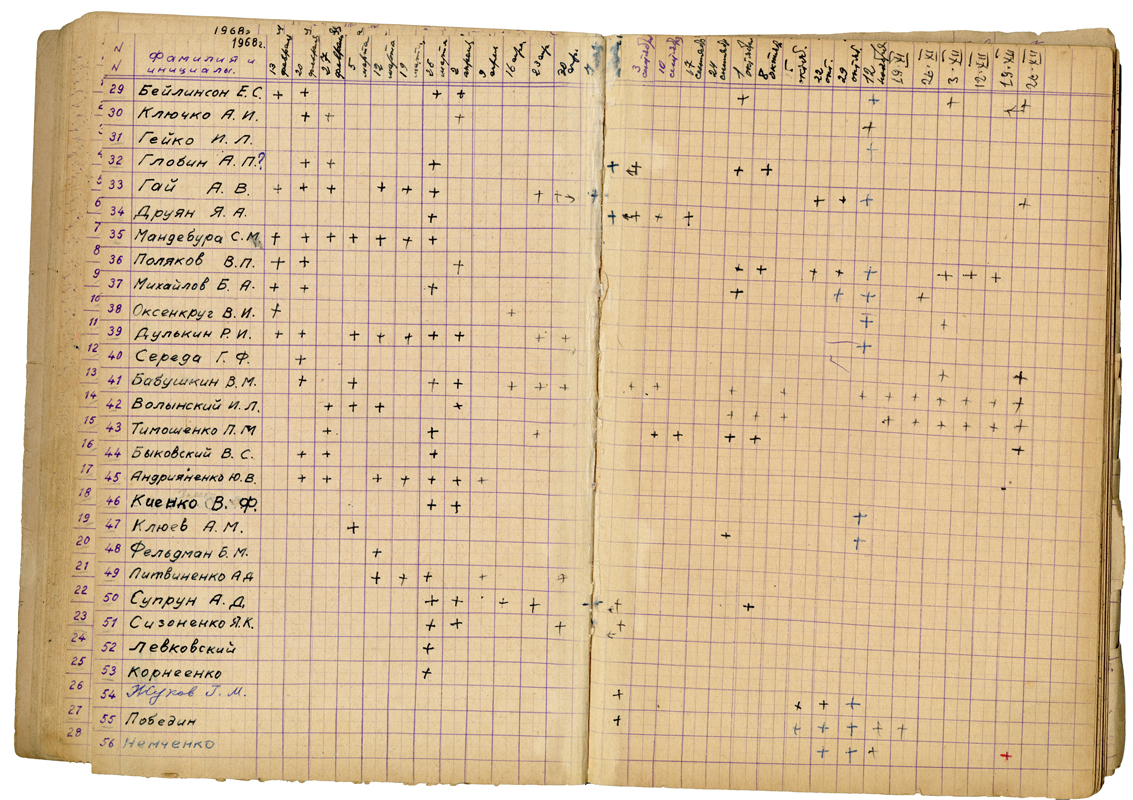 1968г
1968г.
N
N
Фамилия и
инициалы.
13 февраля 20 февраля 27 февраля 5 марта 12 марта 19 марта 26 марта 2 апреля 9 апреля 16 апр. 23 апр. 30 апр. 3 сентябр 10 сентябр 17 сентябр 24 сентябр 1 октябр 8 октябр 22 окт. 29 октябр 12 ноября 19 XI 26·XI 3·XII 12·XII 19·XII 26·XII
29 Бейлинсон Е.С. + + + + + + + +
30 Ключко А. И. + + +
31 Гейко И. Л. +
32 Глобин А. П.? + + + + + +
5 33 Гай А. В. + + + + + + + + +
6 34 Друян Я. А. + + + + +
7 35 Мандебура С. М + + + + + + +
8 36 Поляков В.П. + + + + + + + + + + +
9 37 Михайлов Б. А. + + + + + + +
10 38 Оксенкруг В. И. + + + +
11 39 Дулькин Р. И. + + + + + + + + + +
12 40 Середа Г. Ф. +
13 41 Бабушкин В. М. + + + + + + + + + + + + +
14 42 Волынский И. Л. + + + + + + + + + + + +
15 43 Тимошенко П. М + + + + + + + + + + + + + +
16 44 Быковский В. С. + + + +
17 45 Андрияненко Ю. В. + + + + + + +
18 46 Киенко В. Ф. + +
19 47 Клюев А. М. + + +
20 48 Фельдман Б. М. + +
21 49 Литвиненко А Д + + + + +
22 50 Супрун А. Д. + + + + + + +
23 51 Сизоненко Я.К. + + + +
24 52 Левковский +
25 53 Корнеенко +
26 54 Жуков Г. М. + + + +
27 55 Победин + + + + + +
28 56 Немченко + + + +